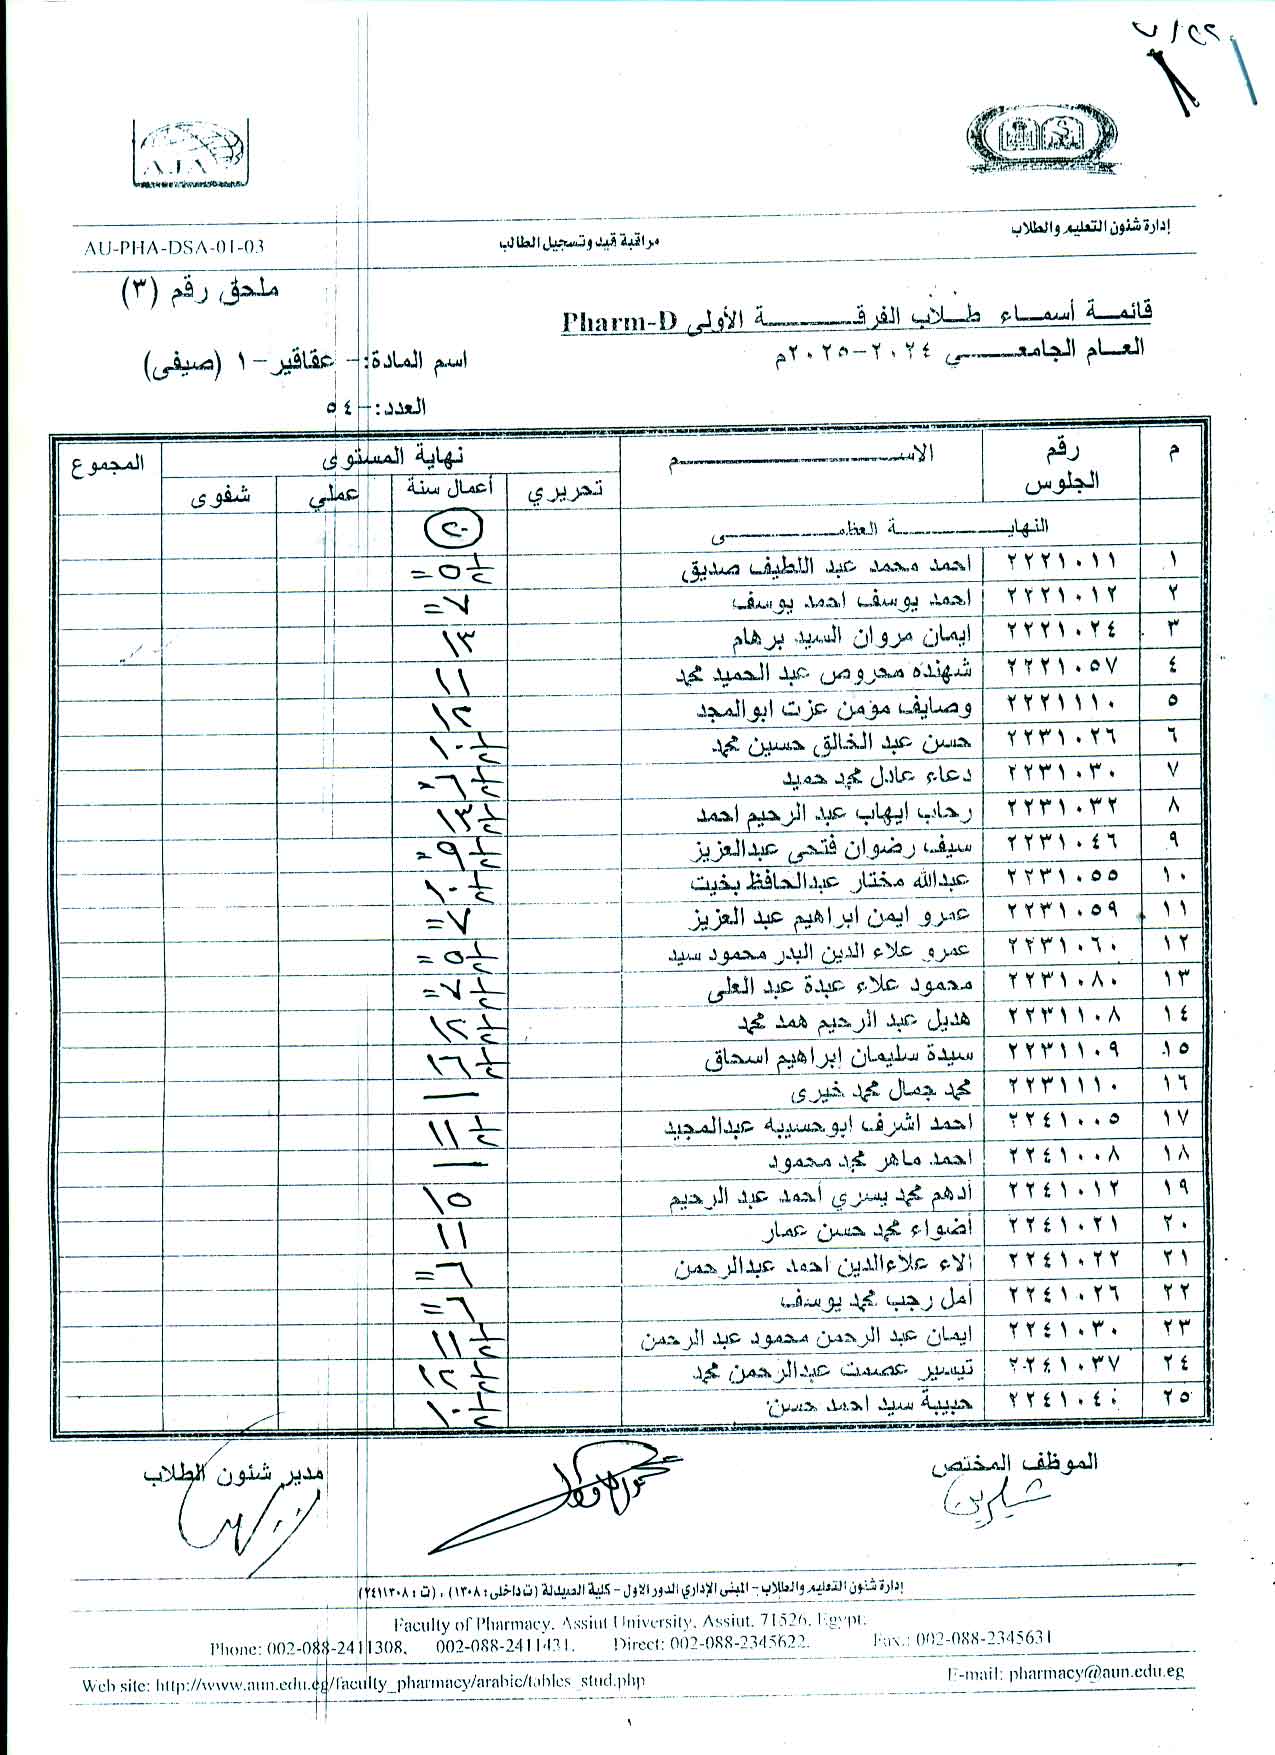 ٧/٢٢
AJA
إدارة شئون التعليم والطلاب
مراقبة قيد وتسجيل الطالب
AU-PHA-DSA-01-03
ملحق رقم (٣)
قائمة أسماء طلاب الفرقة الأولى Pharm-D
العام الجامعي ٢٠٢٤-٢٠٢٥م
اسم المادة:- عقاقير -١ (صيفى)
العدد:- ٥٤
م رقم الجلوس الاسم نهاية المستوى المجموع
تحريري أعمال سنة عملي شفوى
النهاية العظمى ٢٠
١ ٢٢٢١٠١١ احمد محمد عبد اللطيف صديق ٥ ١/٢ =
٢ ٢٢٢١٠١٢ احمد يوسف احمد يوسف ٧ =
٣ ٢٢٢١٠٢٤ ايمان مروان السيد برهام ١٣
٤ ٢٢٢١٠٥٧ شهنده محروص عبد الحميد محمد ١١
٥ ٢٢٢١١١٠ وصايف مؤمن عزت ابوالمجد ١٢
٦ ٢٢٣١٠٢٦ حسن عبد الخالق حسين محمد ١٠ ١/٢
٧ ٢٢٣١٠٣٠ دعاء عادل محمد حميد ٦ ١/٢ =
٨ ٢٢٣١٠٣٢ رحاب ايهاب عبد الرحيم احمد ١٣ ١/٢
٩ ٢٢٣١٠٤٦ سيف رضوان فتحى عبدالعزيز ٩ ١/٢ =
١٠ ٢٢٣١٠٥٥ عبدالله مختار عبدالحافظ بخيت ١٠ ١/٢
١١ ٢٢٣١٠٥٩ عمرو ايمن ابراهيم عبد العزيز ٧ =
١٢ ٢٢٣١٠٦٠ عمرو علاء الدين البدر محمود سيد ٥ ١/٢ =
١٣ ٢٢٣١٠٨٠ محمود علاء عبدة عبد العلى ٧ ١/٢ =
١٤ ٢٢٣١١٠٨ هديل عبد الرحيم همد محمد ١٢ ١/٢
١٥ ٢٢٣١١٠٩ سيدة سليمان ابراهيم اسحاق ١٦ ١/٢
١٦ ٢٢٣١١١٠ محمد جمال محمد خيرى —
١٧ ٢٢٤١٠٠٥ احمد اشرف ابوحسيبه عبدالمجيد ١١ ١/٢
١٨ ٢٢٤١٠٠٨ احمد ماهر محمد محمود —
١٩ ٢٢٤١٠١٢ أدهم محمد يسري أحمد عبد الرحيم ١٥
٢٠ ٢٢٤١٠٢١ أضواء محمد حسن عمار ١١
٢١ ٢٢٤١٠٢٢ الاء علاءالدين احمد عبدالرحمن ٦ =
٢٢ ٢٢٤١٠٢٦ أمل رجب محمد يوسف ٦ =
٢٣ ٢٢٤١٠٣٠ ايمان عبد الرحمن محمود عبد الرحمن ١١ ١/٢
٢٤ ٢٢٤١٠٣٧ تيسير عصمت عبدالرحمن محمد ١٢ ١/٢
٢٥ ٢٢٤١٠٤٠ حبيبة سيد احمد حسن ١٠ ١/٢
الموظف المختص مدير شئون الطلاب
شيرين
إدارة شئون التعليم والطلاب - المبنى الإداري الدور الاول - كلية الصيدلة (ت داخلى: ١٣٠٨) ، (ت : ٢٤١١٣٠٨)
Faculty of Pharmacy, Assiut University, Assiut, 71526, Egypt.
Phone: 002-088-2411308, 002-088-2411431, Direct: 002-088-2345622, Fax.: 002-088-2345631
Web site: http://www.aun.edu.eg/faculty_pharmacy/arabic/tables_stud.php E-mail: pharmacy@aun.edu.eg
١